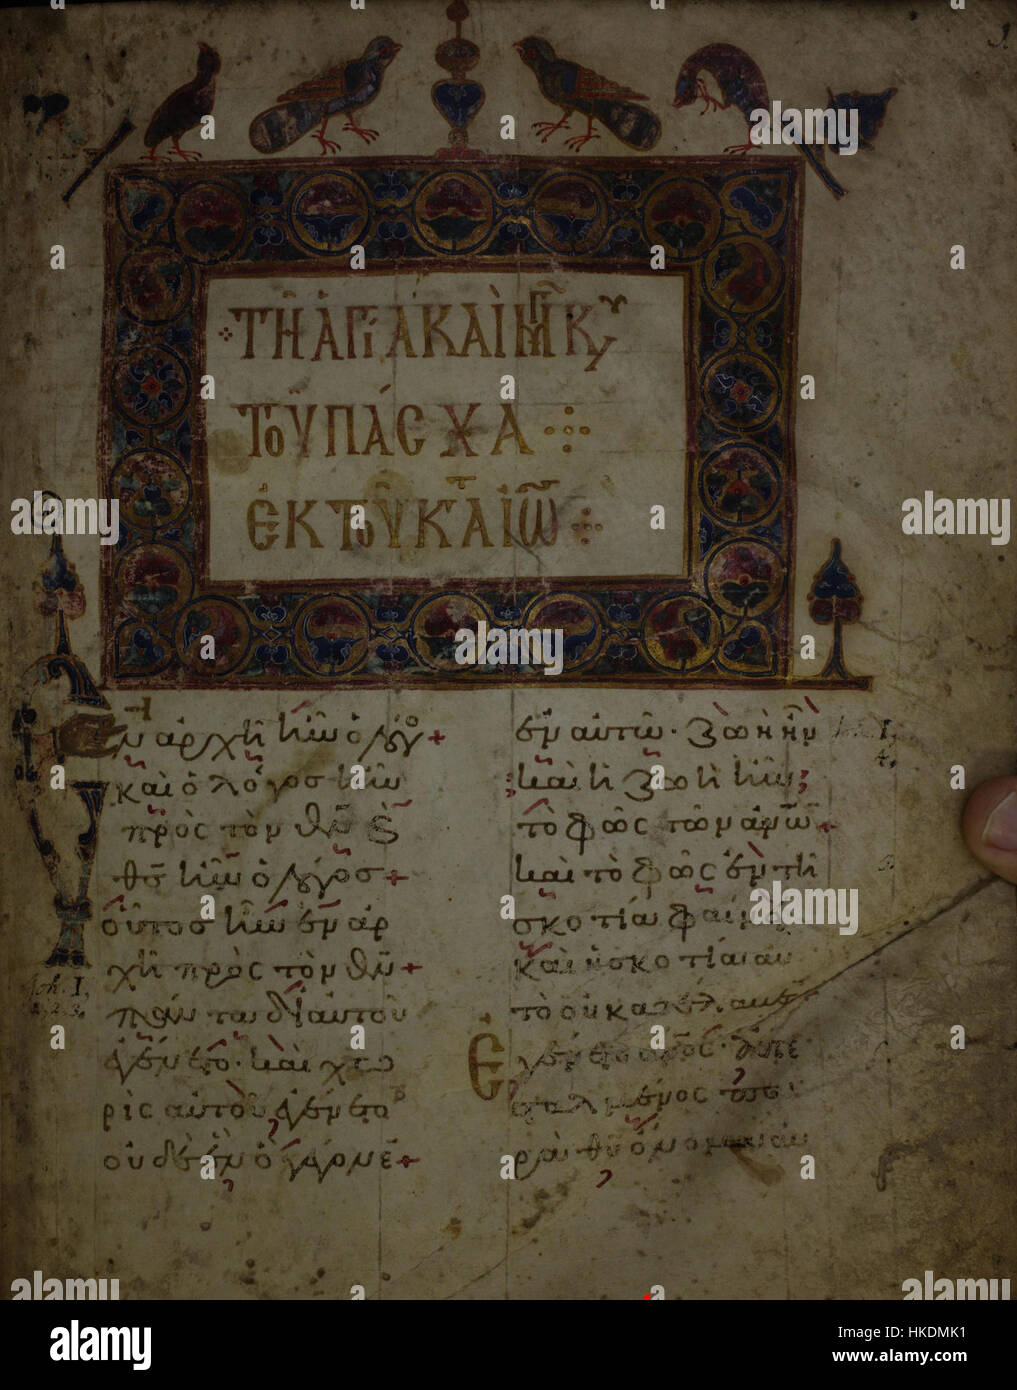 ΤΗ ΑΓΙΑ ΚΑΙ ΜΓΑΛ ΚΥ
ΤΟΥ ΠΑΣΧΑ
ΕΚ ΤΟΥ ΚΑΤ ΙΩ
Εν ἀρχῆ ἦν ὁ λόγο
καὶ ὁ λόγος ἦν
πρὸς τὸν θν κ
θς ἦν ὁ λόγος
οὗτος ἦν ἐν ἀρ
χῆ πρὸς τὸν θν
πάντα δι αυτοῦ
ἐγένετο· καὶ χω
ρὶς αὐτοῦ ἐγένετο
οὐδὲ ἓν ὃ γέγονε
ἐν αυτῶ· ζωὴ ἦν
καὶ ἡ ζωὴ ἦν
τὸ φῶς τῶν ἀνῶ
καὶ τὸ φῶς ἐν τῆ
σκοτία φαίνει
καὶ ἡ σκοτία αυ
τὸ οὐ κατέλαβεν
Ἐγένετο ἄνος· ἀπε
σταλμένος παρὰ
θυ ὄνομα
Joh. I,
1.2.3.
Joh. I,
4.
5.
1.
alamy
HKDMK1
www.alamy.com